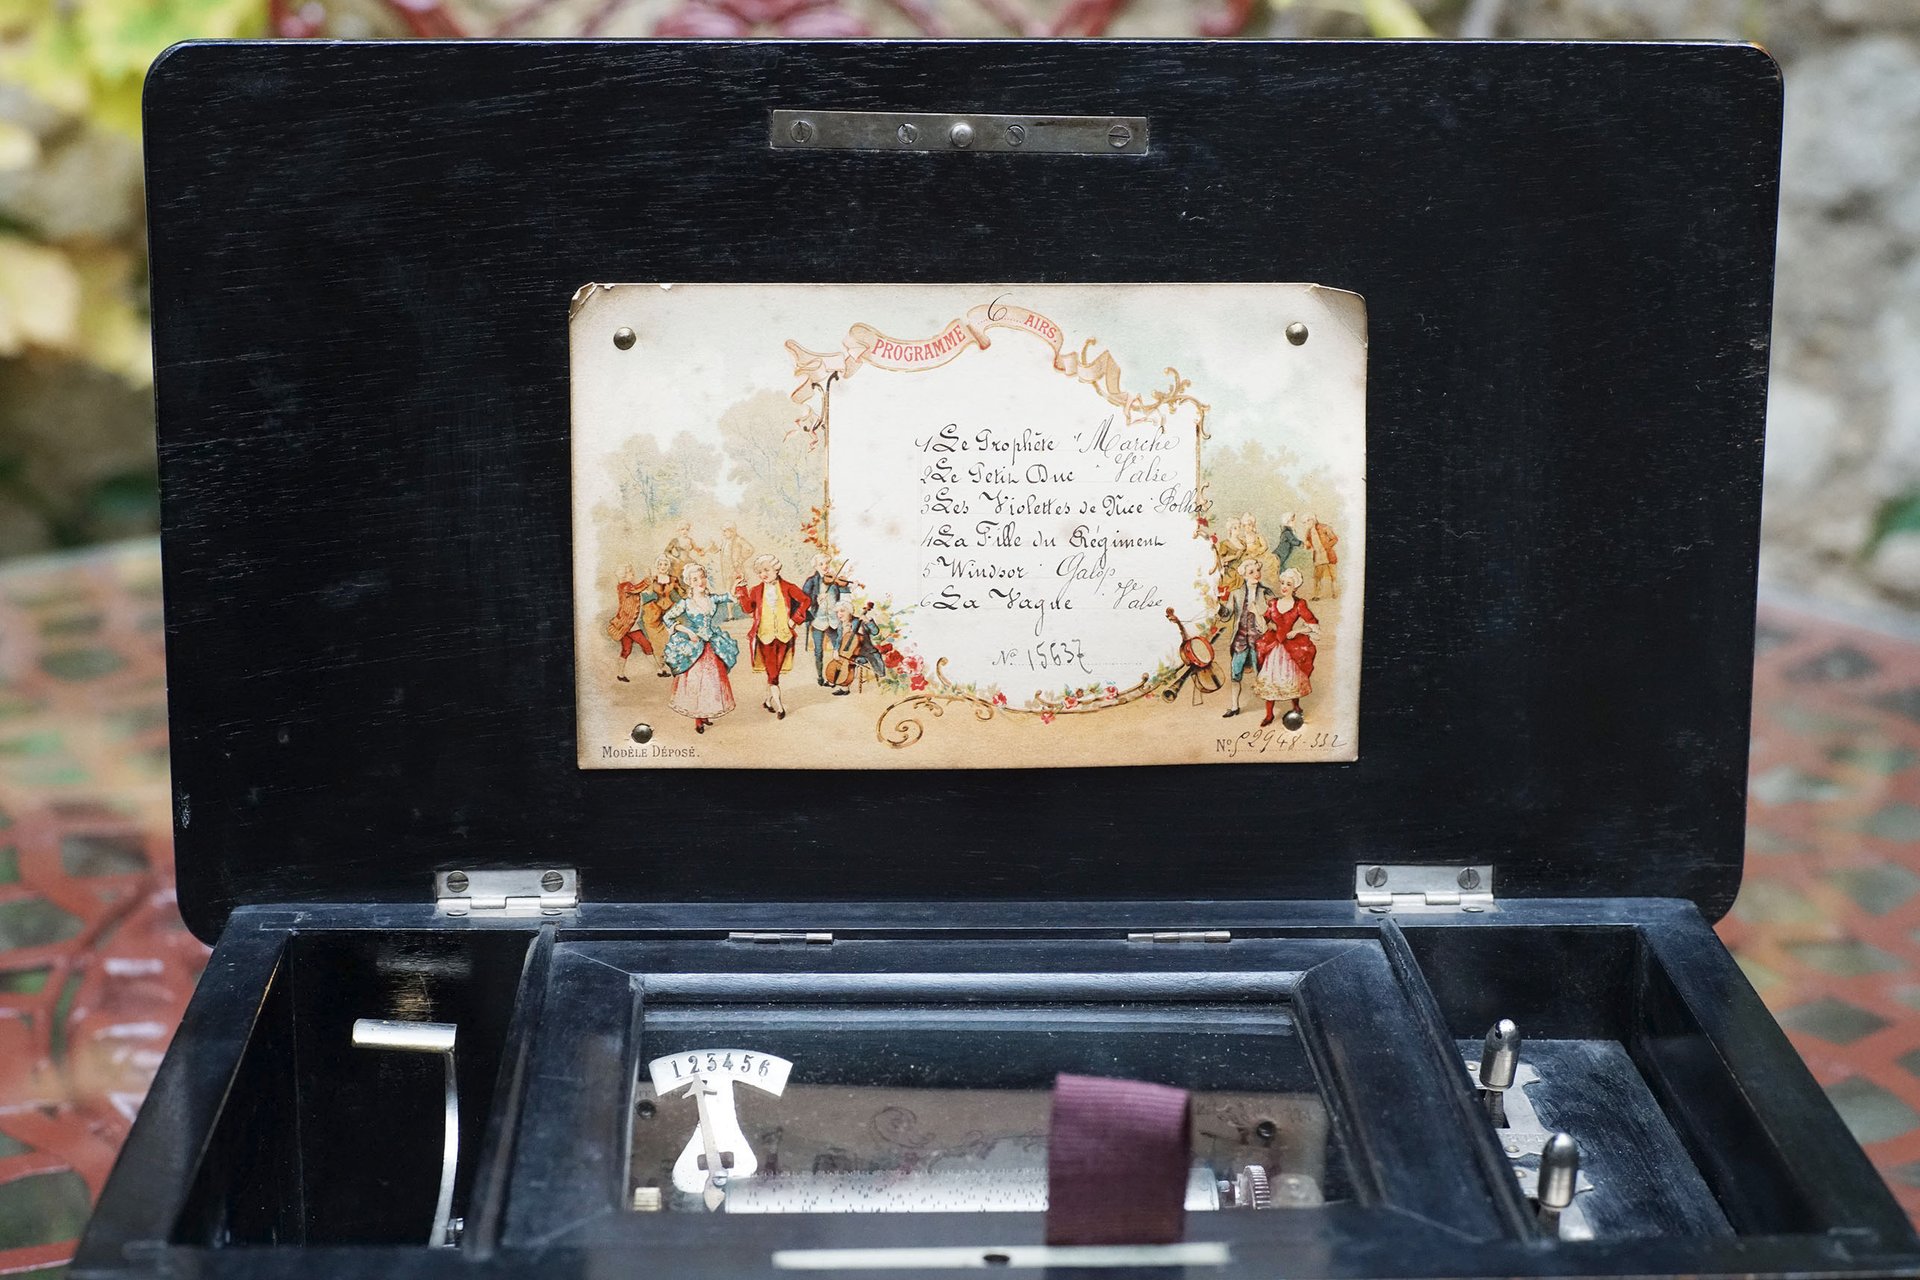 PROGRAMME 6 AIRS.
1 Le Prophète " Marche
2 Le Petit Duc " Valse
3 Les Violettes de Nice " Polka
4 La Fille du Régiment
5 Windsor " Galop
6 La Vague " Valse
Nº 15637
MODÈLE DÉPOSÉ.
Nº
1 2 3 4 5 6